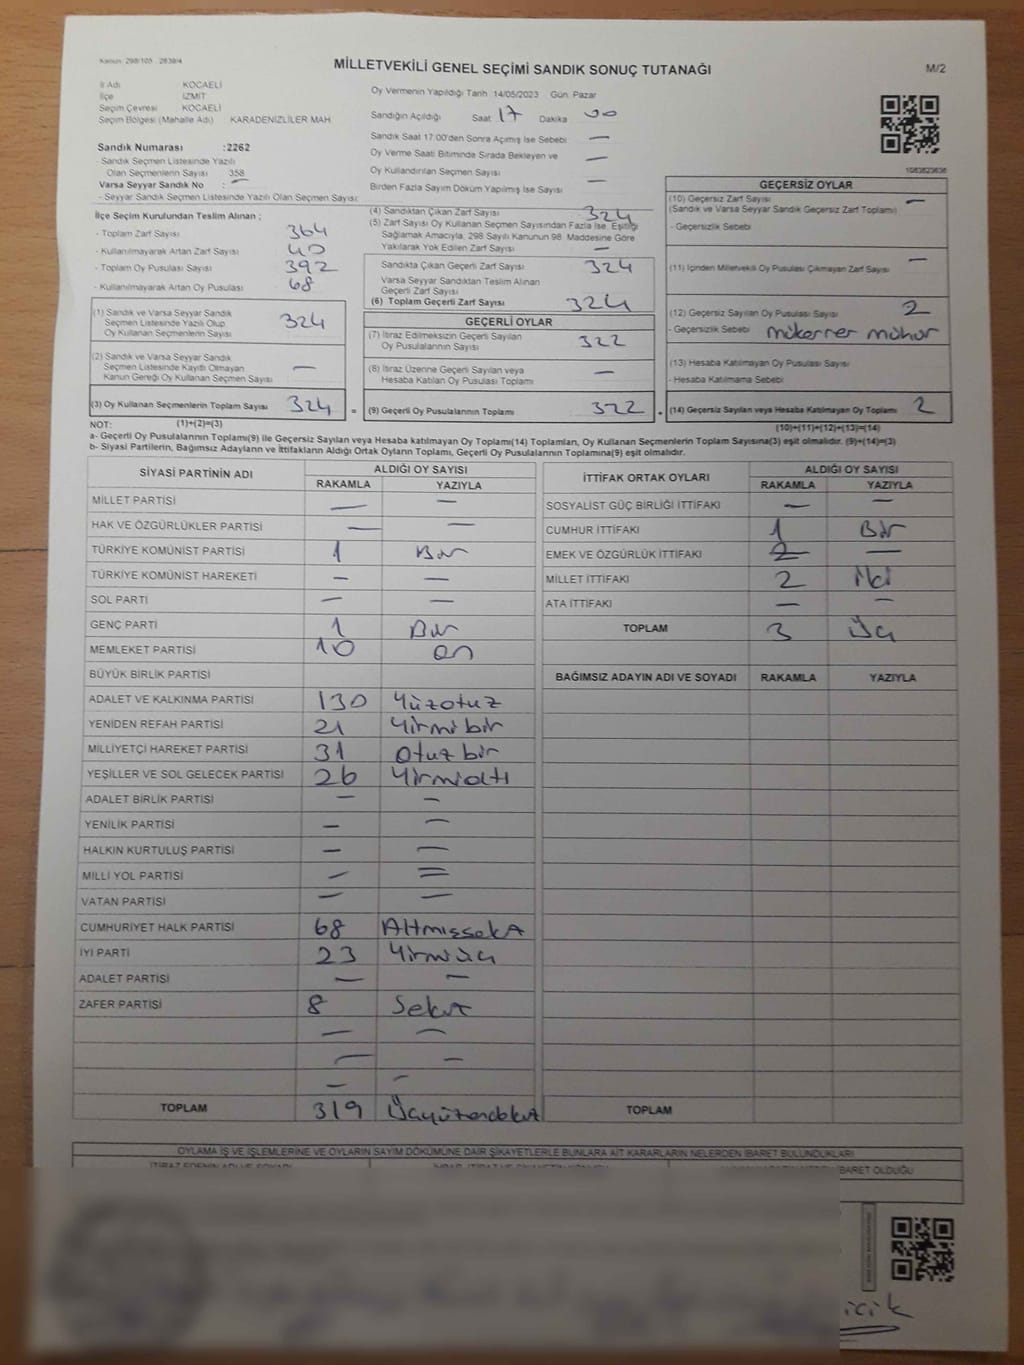 Kanun: 298/105 , 2839/4
MİLLETVEKİLİ GENEL SEÇİMİ SANDIK SONUÇ TUTANAĞI
M/2
İl Adı KOCAELİ
İlçe İZMİT
Seçim Çevresi KOCAELİ
Seçim Bölgesi (Mahalle Adı) KARADENİZLİLER MAH.
Sandık Numarası :2262
- Sandık Seçmen Listesinde Yazılı
Olan Seçmenlerin Sayısı 358
Varsa Seyyar Sandık No : —
- Seyyar Sandık Seçmen Listesinde Yazılı Olan Seçmen Sayısı:
Oy Vermenin Yapıldığı Tarih 14/05/2023 Gün: Pazar
Sandığın Açıldığı Saat 17 Dakika 00
Sandık Saat 17:00'den Sonra Açımış İse Sebebi —
Oy Verme Saati Bitiminde Sırada Bekleyen ve —
Oy Kullandırılan Seçmen Sayısı
Birden Fazla Sayım Döküm Yapılmış İse Sayısı —
1083823638
İlçe Seçim Kurulundan Teslim Alınan ;
- Toplam Zarf Sayısı 364
- Kullanılmayarak Artan Zarf Sayısı 40
- Toplam Oy Pusulası Sayısı 392
- Kullanılmayarak Artan Oy Pusulası 68
(1) Sandık ve Varsa Seyyar Sandık
Seçmen Listesinde Yazılı Olup
Oy Kullanan Seçmenlerin Sayısı 324
(2) Sandık ve Varsa Seyyar Sandık
Seçmen Listesinde Kayıtlı Olmayan
Kanun Gereği Oy Kullanan Seçmen Sayısı —
(3) Oy Kullanan Seçmenlerin Toplam Sayısı 324
(4) Sandıktan Çıkan Zarf Sayısı 324
(5) Zarf Sayısı Oy Kullanan Seçmen Sayısından Fazla İse, Eşitliği
Sağlamak Amacıyla, 298 Sayılı Kanunun 98. Maddesine Göre
Yakılarak Yok Edilen Zarf Sayısı —
Sandıkta Çıkan Geçerli Zarf Sayısı 324
Varsa Seyyar Sandıktan Teslim Alınan
Geçerli Zarf Sayısı
(6) Toplam Geçerli Zarf Sayısı 324
GEÇERLİ OYLAR
(7) İtiraz Edilmeksizin Geçerli Sayılan
Oy Pusulalarının Sayısı 322
(8) İtiraz Üzerine Geçerli Sayılan veya
Hesaba Katılan Oy Pusulası Toplamı —
= (9) Geçerli Oy Pusulalarının Toplamı 322
GEÇERSİZ OYLAR
(10) Geçersiz Zarf Sayısı —
(Sandık ve Varsa Seyyar Sandık Geçersiz Zarf Toplamı)
- Geçersizlik Sebebi
(11) İçinden Milletvekili Oy Pusulası Çıkmayan Zarf Sayısı —
(12) Geçersiz Sayılan Oy Pusulası Sayısı 2
- Geçersizlik Sebebi mükerrer mühür
(13) Hesaba Katılmayan Oy Pusulası Sayısı
- Hesaba Katılmama Sebebi
+ (14) Geçersiz Sayılan veya Hesaba Katılmayan Oy Toplamı 2
NOT: (1)+(2)=(3)
(10)+(11)+(12)+(13)=(14)
a- Geçerli Oy Pusulalarının Toplamı(9) ile Geçersiz Sayılan veya Hesaba katılmayan Oy Toplamı(14) Toplamları, Oy Kullanan Seçmenlerin Toplam Sayısına(3) eşit olmalıdır. (9)+(14)=(3)
b- Siyasi Partilerin, Bağımsız Adayların ve İttifakların Aldığı Ortak Oyların Toplamı, Geçerli Oy Pusulalarının Toplamına(9) eşit olmalıdır.
SİYASİ PARTİNİN ADI ALDIĞI OY SAYISI
RAKAMLA YAZIYLA
MİLLET PARTİSİ — —
HAK VE ÖZGÜRLÜKLER PARTİSİ — —
TÜRKİYE KOMÜNİST PARTİSİ 1 Bir
TÜRKİYE KOMÜNİST HAREKETİ — —
SOL PARTİ — —
GENÇ PARTİ 1 Bir
MEMLEKET PARTİSİ 10 on
BÜYÜK BİRLİK PARTİSİ
ADALET VE KALKINMA PARTİSİ 130 Yüzotuz
YENİDEN REFAH PARTİSİ 21 Yirmi bir
MİLLİYETÇİ HAREKET PARTİSİ 31 Otuz bir
YEŞİLLER VE SOL GELECEK PARTİSİ 26 Yirmialtı
ADALET BİRLİK PARTİSİ — —
YENİLİK PARTİSİ — —
HALKIN KURTULUŞ PARTİSİ — —
MİLLİ YOL PARTİSİ — —
VATAN PARTİSİ — —
CUMHURİYET HALK PARTİSİ 68 Altmışsekiz
İYİ PARTİ 23 Yirmiüç
ADALET PARTİSİ — —
ZAFER PARTİSİ 8 Sekiz
— —
— —
— —
TOPLAM 319 Üçyüzondokuz
İTTİFAK ORTAK OYLARI ALDIĞI OY SAYISI
RAKAMLA YAZIYLA
SOSYALİST GÜÇ BİRLİĞİ İTTİFAKI — —
CUMHUR İTTİFAKI 1 Bir
EMEK VE ÖZGÜRLÜK İTTİFAKI —
MİLLET İTTİFAKI 2 İki
ATA İTTİFAKI — —
TOPLAM 3 Üç
BAĞIMSIZ ADAYIN ADI VE SOYADI RAKAMLA YAZIYLA
TOPLAM
OYLAMA İŞ VE İŞLEMLERİNE VE OYLARIN SAYIM DÖKÜMÜNE DAİR ŞİKAYETLERLE BUNLARA AİT KARARLARIN NELERDEN İBARET BULUNDUKLARI
İBARET OLDUĞU